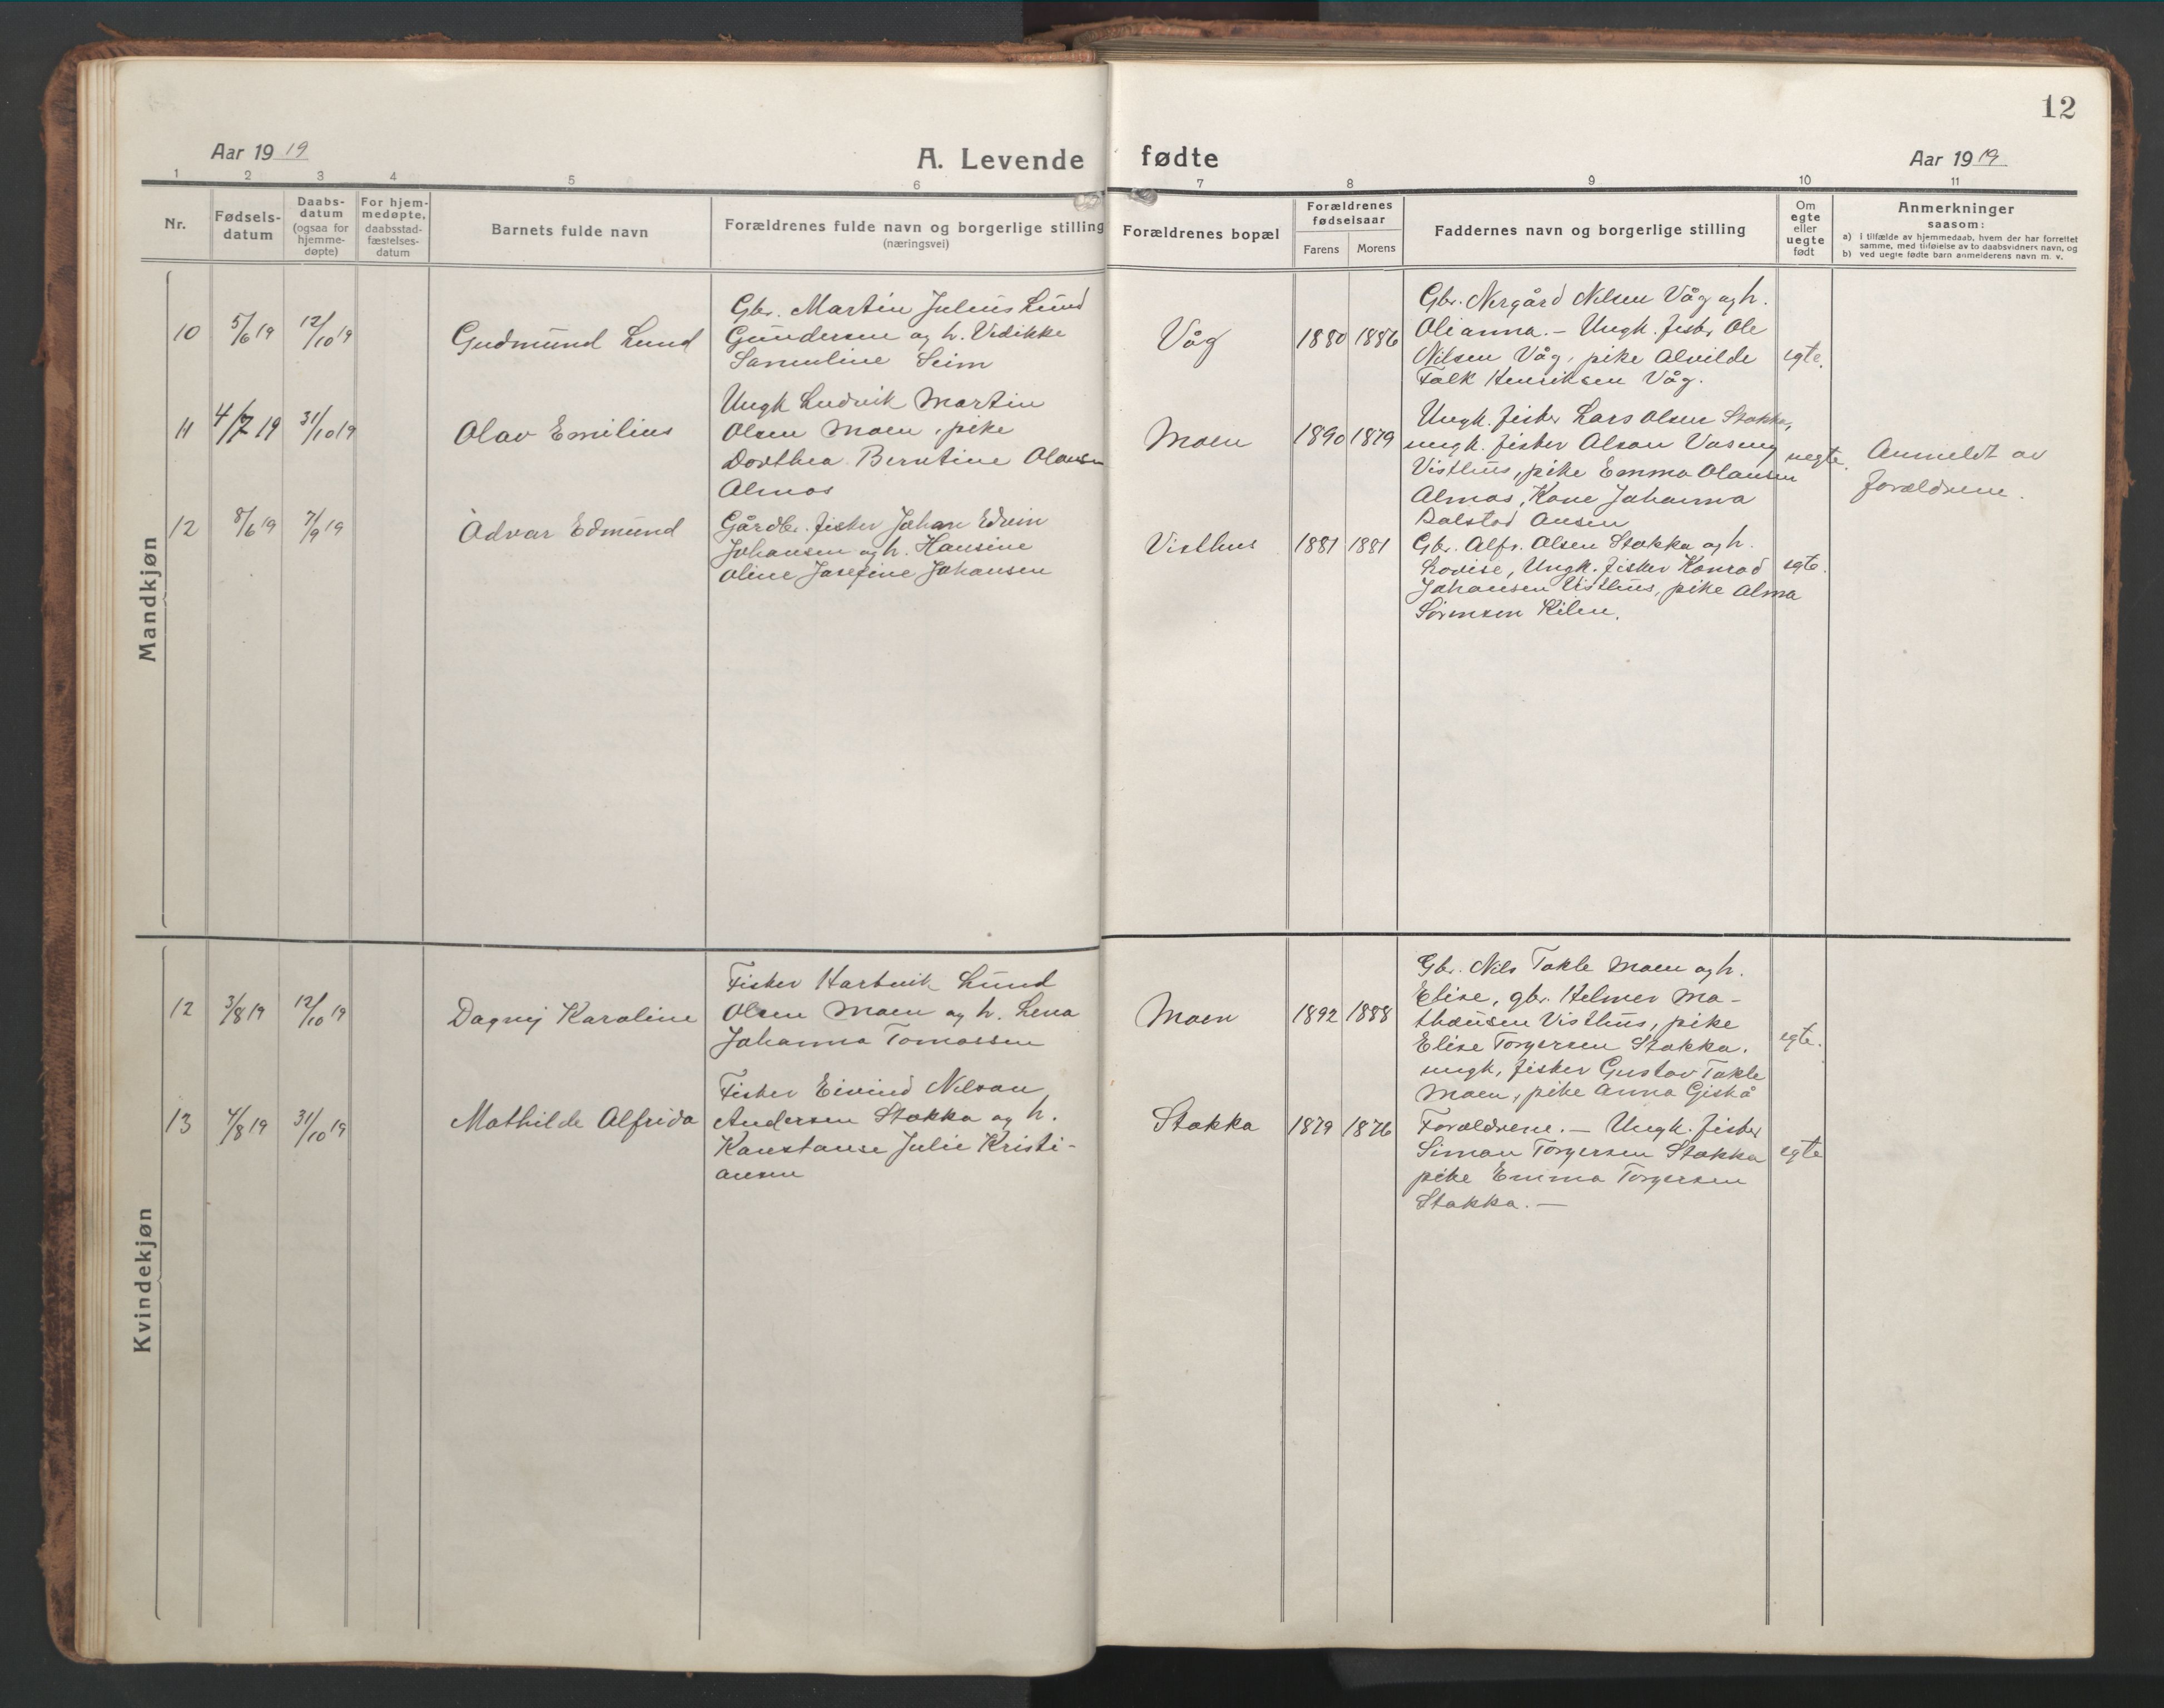 12
Aar 1919
A. Levende fødte
Aar 1919
1 2 3 4 5 6 7 8 9 10 11
Nr.
Fødsels-
datum
Daabs-
datum
(ogsaa for
hjemme-
døpte)
For hjem-
medøpte,
daabsstad-
fæstelses-
datum
Barnets fulde navn
Forældrenes fulde navn og borgerlige stilling
(næringsvei)
Forældrenes bopæl
Forældrenes
fødselsaar
Farens Morens
Faddernes navn og borgerlige stilling
Om
egte
eller
uegte
født
Anmerkninger
saasom:
a) i tilfælde av hjemmedaab, hvem der har forrettet
samme, med tilføielse av to daabsvidners navn, og
b) ved uegte fødte barn anmelderens navn m. v.
Mandkjøn
10 5/6 19 12/10 19
Gudmund Lund
Gbr. Martin Julius Lund
Gundersen og h. Vedikke
Samuline Seim
Våg
1880 1886
Gbr. Nergård Nilsen Våg og h.
Olianna. – Ungk. fisker Ole
Nilsen Våg, pike Alvilde
Falk Henriksen Våg.
egte.
11 4/7 19 31/10 19
Olav Emilius
Ungk Ludvik Martin
Olsen Moen, pike
Dorthea Berntine Olausen
Almos
Moen
1890 1879
Ungk. fisker Lars Olsen Stokka,
ungk. fisker Alson
Visthus, pike Emma Olausen
Almos, Kone Johanna
Dalstad Ausen
uegte.
Anmeldt av
forældrene.
12 8/6 19 7/9 19
Odvar Edmund
Gårdbr. fisker Johan Edvin
Johansen og h. Hansine
Oline Josefine Johansen
Visthus
1881 1881
Gbr. Alfr. Olsen Stokka og h.
Lovise, Ungk. fisker Konrad
Johansen Visthus, pike Alma
Sørensen Kilen.
egte.
Kvindekjøn
12 3/8 19 12/10 19
Dagny Karoline
Fisker Hartvik Lund
Olsen Moen og h. Lena
Johanna Tomassen
Moen
1892 1888
Gbr. Nils Takle Moen og h.
Elise, gbr. Helmer Ma-
thæusen Visthus, pike
Elise Torgersen Stokka.
ungk, fisker Gustav Takle
Moen, pike Anna Giskå
egte.
13 4/8 19 31/10 19
Mathilde Alfrida
Fisker Eivind Nilsan
Andersen Stokka og h.
Konstanse Julie Kristi-
ansen
Stokka
1879 1876
Forældrene. – Ungk. fisker
Simon Torgersen Stokka
pike Emma Torgersen
Stokka. –
egte